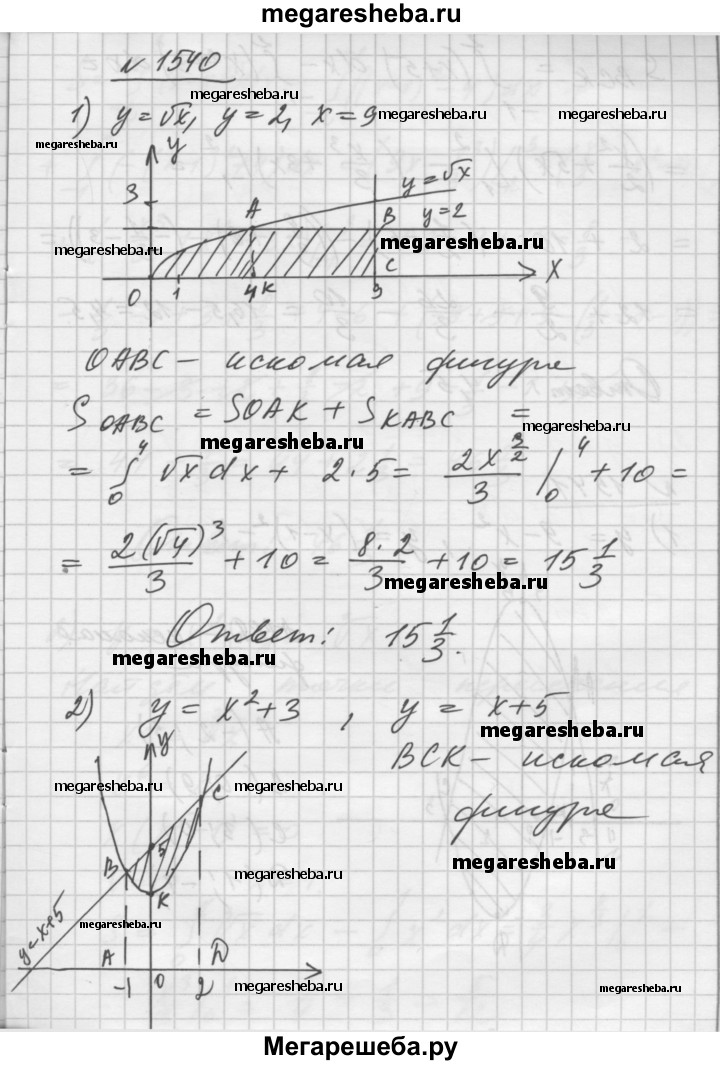 megaresheba.ru
№ 1540
megaresheba.ru
1) y = √x, y = 2, x = 9 megaresheba.ru megaresheba.ru
megaresheba.ru
y
3 A y = √x
B y = 2
megaresheba.ru megaresheba.ru
C
0 1 4 K 9 X
OABC – искомая фигура
S OABC = SOAK + S KABC =
megaresheba.ru
megaresheba.ru
= ∫₀⁴ √x dx + 2·5 = 2x^(3/2)/3 |₀⁴ + 10 =
= 2(√4)³/3 + 10 = 8·2/3 + 10 = 15 1/3
megaresheba.ru
Ответ: 15 1/3.
megaresheba.ru
2) y = x² + 3, y = x + 5
megaresheba.ru
y
BCK – искомая
megaresheba.ru megaresheba.ru megaresheba.ru
C
фигура
5
B
megaresheba.ru megaresheba.ru
K
y = x + 5
megaresheba.ru
A D
-1 0 2
megaresheba.ru megaresheba.ru
Мегарешеба.ру